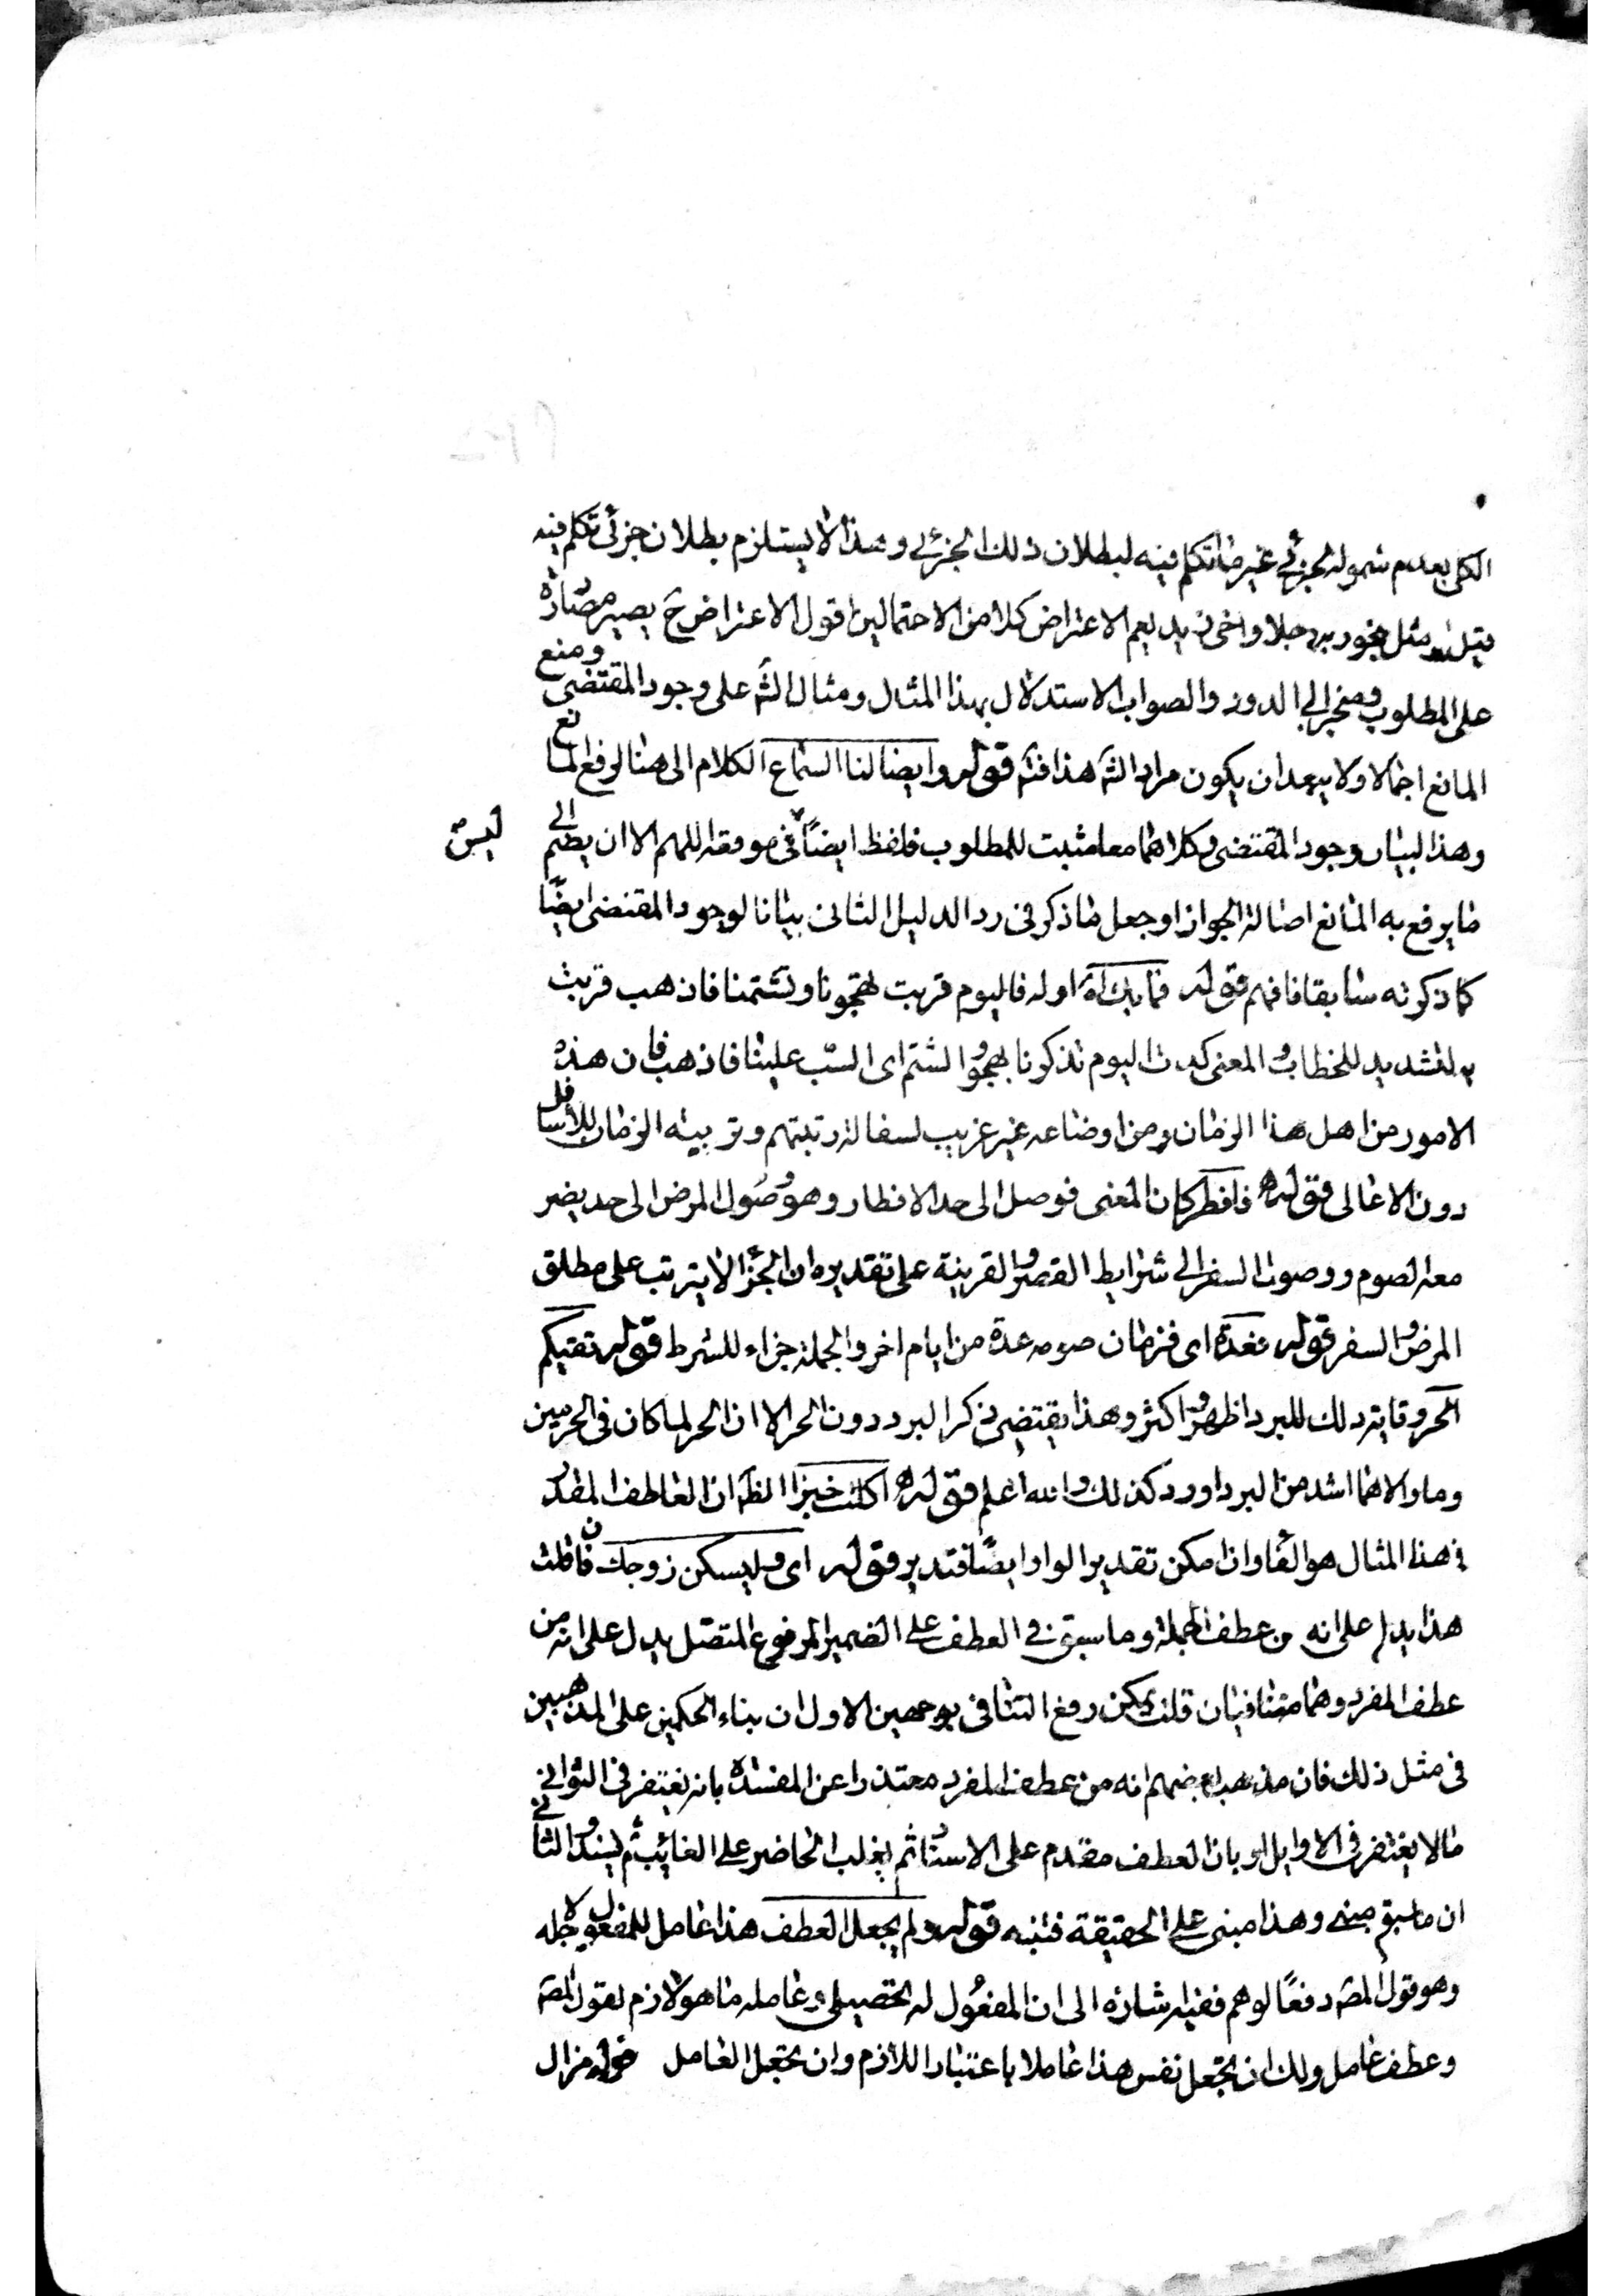 الكلى بعدم شموله لجزئى غير ما تكلم فيه لبطلان ذلك الجزئى وهذا لا يستلزم بطلان جزئى تكلم فيه
مثل بهجو رجلا واخى زيد ليعم الاعتراض كلا من الاحتمالين اقول الاعتراض ح يصير مصادرة
على المطلوب ومنجر الى الدور والصواب الاستدلال بهذا المثال ومثال الش على وجود المقتضى ومنع
المانع اجمالا ولا يبعد ان يكون مراد الش هذا فتم قوله وايضا لنا السماع الكلام الى هنا لرفع المانع
وهذا لبيان وجود المقتضى وكلاهما معا مثبت للمطلوب فلفظ ايضًا ليس فى موقعه اللهم الا ان يضم الى
ما يرفع به المانع اصالة الجواز او جعل ما ذكر فى رد الدليل الثانى بيانا لوجود المقتضى ايضًا
كما ذكرته سابقا فافهم قوله فما بك اه اوله فاليوم قربت تهجونا وتشتمنا فاذهب قربت
بالتشديد للخطاب والمعنى كدت اليوم تذكرنا بهجو والشتم اى السب علينا فاذهب فان هذه
الامور من اهل هذا الزمان ومن اوضاعه غير غريب لسفالة رتبتهم وتربية الزمان للاسافل
دون الاعالى قوله فافطر كان المعنى فوصل الى حد الافطار وهو وصول المرض الى حد يضر
معه الصوم ووصول السفر الى شرايط القصر والقرينة على تقديره ان الجزا لا يترتب على مطلق
المرض والسفر قوله فعدة اى فزمان صومه عدة من ايام اخر والجملة جزاء للشرط قوله تقيكم
الحر وقاية ذلك للبرد اظهر واكثر وهذا يقتضى ذكر البرد دون الحر الا ان الحر لما كان فى الحرمين
وما والاهما اشد من البرد اورد كذلك والله اعلم قوله اكلت خبزا الظ ان العاطف المقدر
فى هذا المثال هو الفا وان امكن تقدير الواو ايضًا فتدبر قوله اى وليسكن زوجك فان قلت
هذا يدل على انه من عطف الجملة وما سبق فى العطف على الضمير المرفوع المتصل يدل على انه من
عطف المفرد وهما متنافيان قلت يمكن رفع التنافى بوجهين الاول ان بناء الحكمين على المذهبين
فى مثل ذلك فان مذهب بعضهم انه من عطف المفرد معتذرا عن المفسدة بانه يغتفر فى الثوانى
ما لا يغتفر فى الاوايل او بان العطف مقدم على الاسناد ثم يغلب الحاضر على الغايب ثم يسند والثانى
ان ما سبق مبنى وهذا مبنى على الحقيقة فتنبه قوله ولم يجعل العطف هذا عامل للمفعول لاجله
وهو قول المص دفعًا لوهم ففيه اشارة الى ان المفعول له تحصيلى وعامله ما هو لازم لقول المص
وعطف عامل ولك ان تجعل نفس هذا عاملا باعتبار اللازم وان تجعل العامل قوله مزال